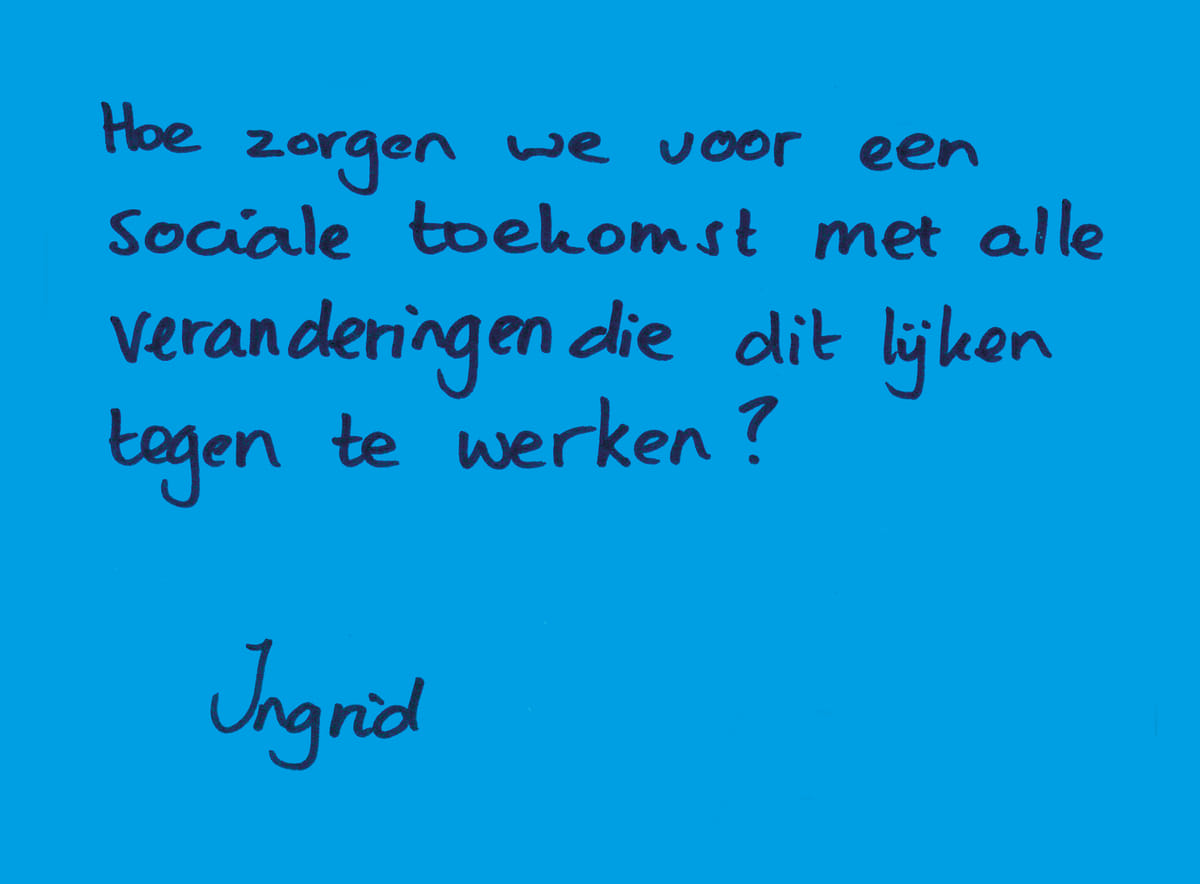 Hoe zorgen we voor een
sociale toekomst met alle
veranderingen die dit lijken
tegen te werken?
Ingrid